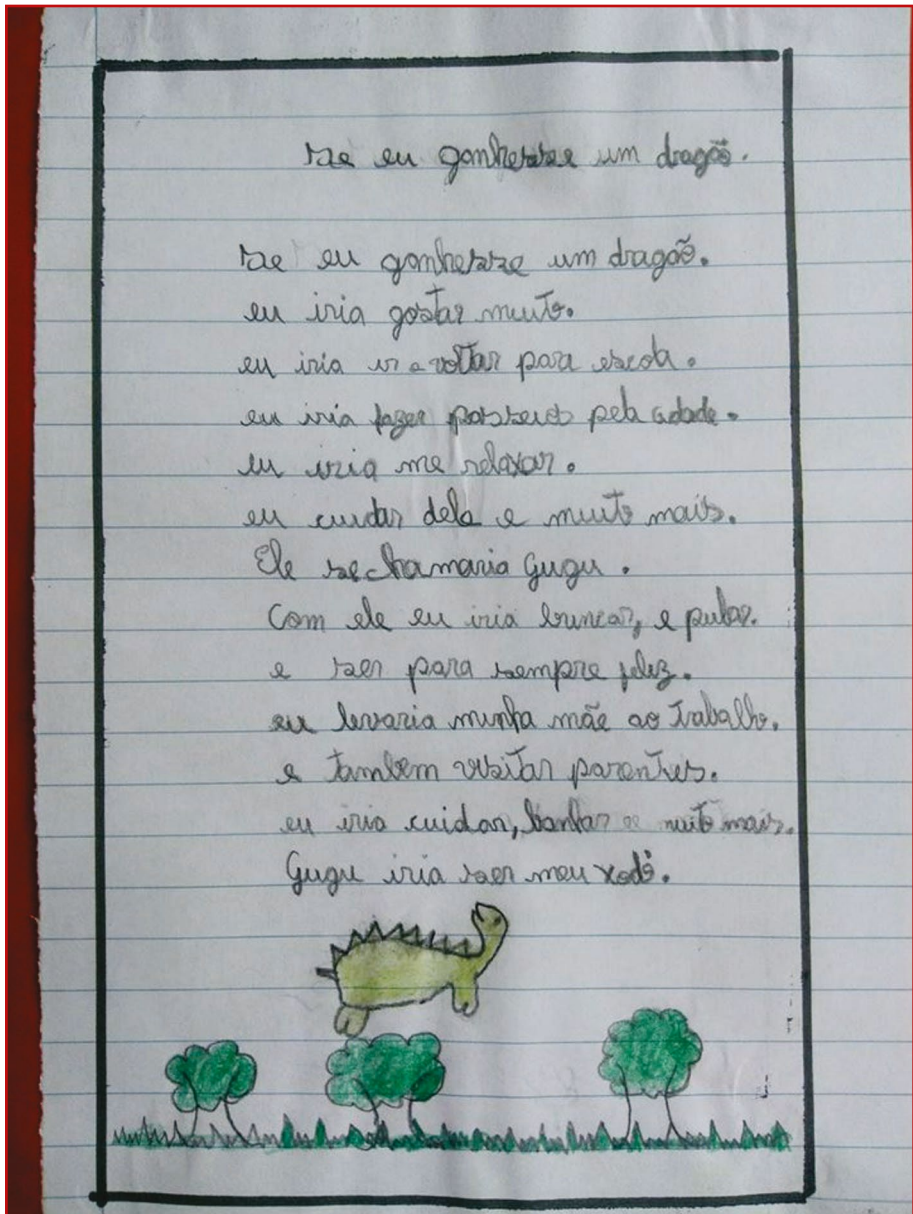 se eu ganhesse um dragão.
se eu ganhesse um dragão.
eu iria gostar muito.
eu iria ir e voltar para escola.
eu iria fazer passeios pela cidade.
eu iria me relaxar.
eu cuidar dele e muito mais.
Ele se chamaria Gugu.
Com ele eu iria brincar, e pular.
e ser para sempre feliz.
eu levaria minha mãe ao trabalho.
e tambem visitar parentes.
eu iria cuidar, banhar e muito mais.
Gugu iria ser meu xodó.